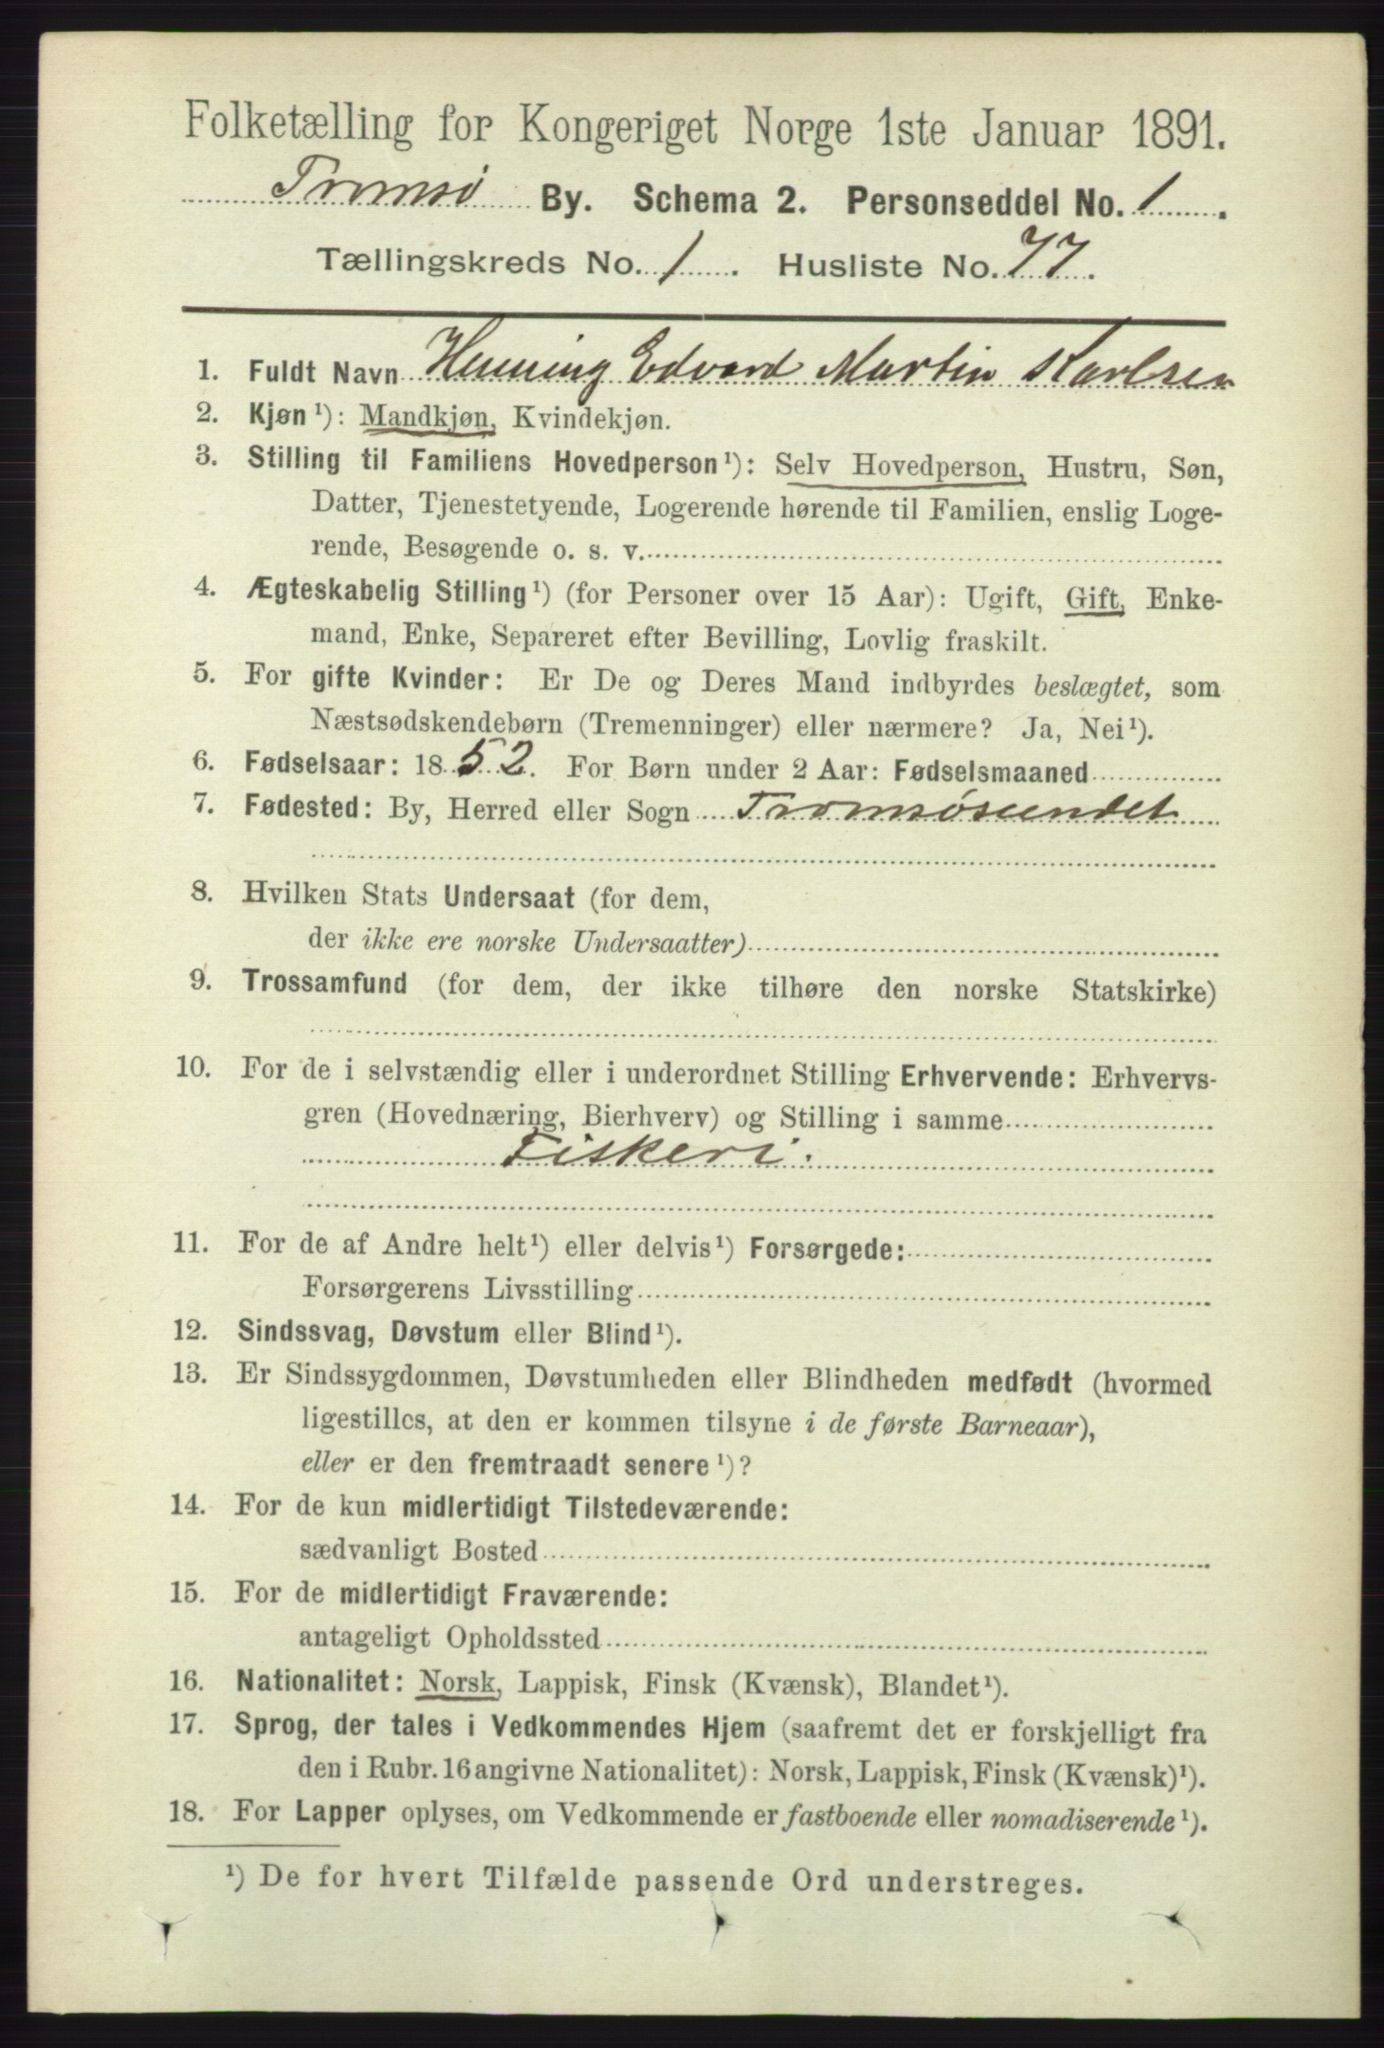 Folketælling for Kongeriget Norge 1ste Januar 1891.
Tromsø By. Schema 2. Personseddel No. 1.
Tællingskreds No. 1. Husliste No. 77.
1. Fuldt Navn Henning Edvard Martin Karlsen
2. Kjøn ¹): Mandkjøn, Kvindekjøn.
3. Stilling til Familiens Hovedperson ¹): Selv Hovedperson, Hustru, Søn,
Datter, Tjenestetyende, Logerende hørende til Familien, enslig Loge-
rende, Besøgende o. s. v.
4. Ægteskabelig Stilling ¹) (for Personer over 15 Aar): Ugift, Gift, Enke-
mand, Enke, Separeret efter Bevilling, Lovlig fraskilt.
5. For gifte Kvinder: Er De og Deres Mand indbyrdes beslægtet, som
Næstsødskendebørn (Tremenninger) eller nærmere? Ja, Nei ¹).
6. Fødselsaar: 1852. For Børn under 2 Aar: Fødselsmaaned
7. Fødested: By, Herred eller Sogn Tromsøsundet
8. Hvilken Stats Undersaat (for dem,
der ikke ere norske Undersaatter)
9. Trossamfund (for dem, der ikke tilhøre den norske Statskirke)
10. For de i selvstændig eller i underordnet Stilling Erhvervende: Erhvervs-
gren (Hovednæring, Bierhverv) og Stilling i samme
Fiskeri.
11. For de af Andre helt ¹) eller delvis ¹) Forsørgede:
Forsørgerens Livsstilling
12. Sindssvag, Døvstum eller Blind ¹).
13. Er Sindssygdommen, Døvstumheden eller Blindheden medfødt (hvormed
ligestilles, at den er kommen tilsyne i de første Barneaar),
eller er den fremtraadt senere ¹)?
14. For de kun midlertidigt Tilstedeværende:
sædvanligt Bosted
15. For de midlertidigt Fraværende:
antageligt Opholdssted
16. Nationalitet: Norsk, Lappisk, Finsk (Kvænsk), Blandet ¹).
17. Sprog, der tales i Vedkommendes Hjem (saafremt det er forskjelligt fra
den i Rubr. 16 angivne Nationalitet): Norsk, Lappisk, Finsk (Kvænsk) ¹).
18. For Lapper oplyses, om Vedkommende er fastboende eller nomadiserende ¹).
¹) De for hvert Tilfælde passende Ord understreges.